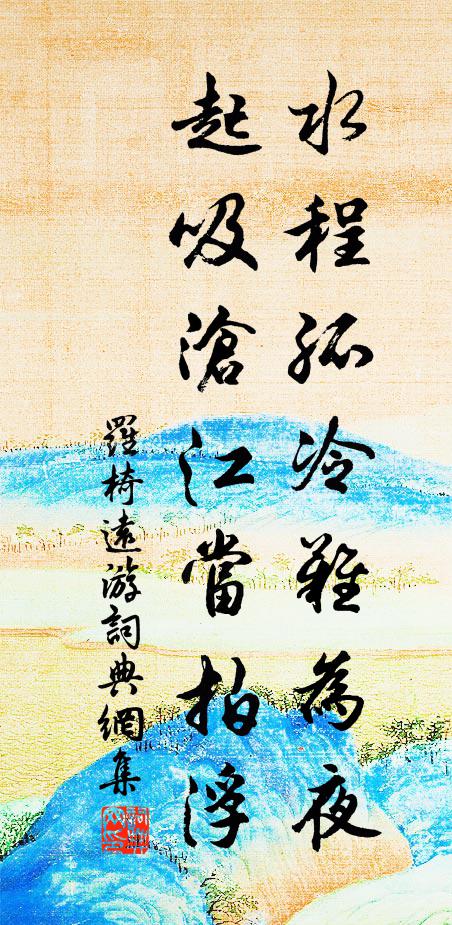 水程孤冷難為夜
起吸滄江當拍浮
羅椅遠游詞典網集